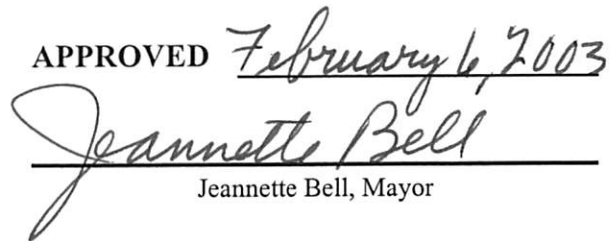 APPROVED February 6, 2003
Jeannette Bell
Jeannette Bell, Mayor